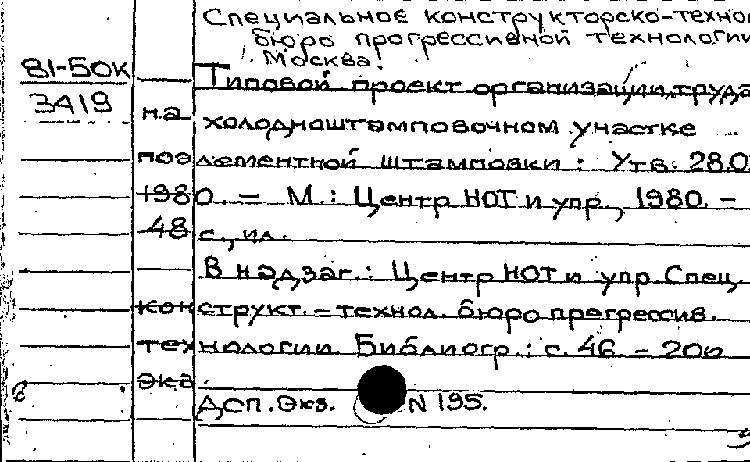 Специальное конструкторско-техно
бюро прогрессивной технологии
Москва.
81-50К
3419
Типовой проект организации труда
на холодноштамповочном участке
поэлементной штамповки: Утв. 28.0
1980. - М.: Центр НОТ и упр., 1980. -
48 с., ил.
В надзаг.: Центр НОТ и упр. Спец.
конструкт. - технол. бюро прогрессив.
технологии. Библиогр.: с. 46. - 200
экз.
ДСП. Экз. N 195.